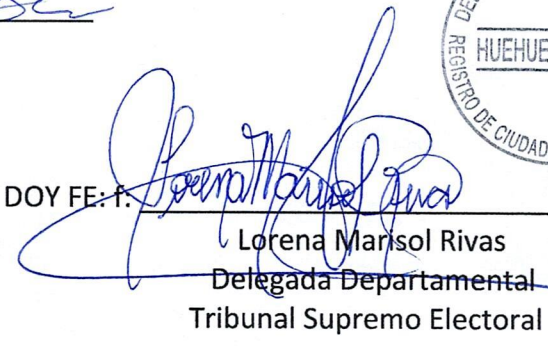 DE
HUEHUE
REGISTRO DE CIUDAD
DOY FE: f: Lorena Marisol Rivas
Lorena Marisol Rivas
Delegada Departamental
Tribunal Supremo Electoral